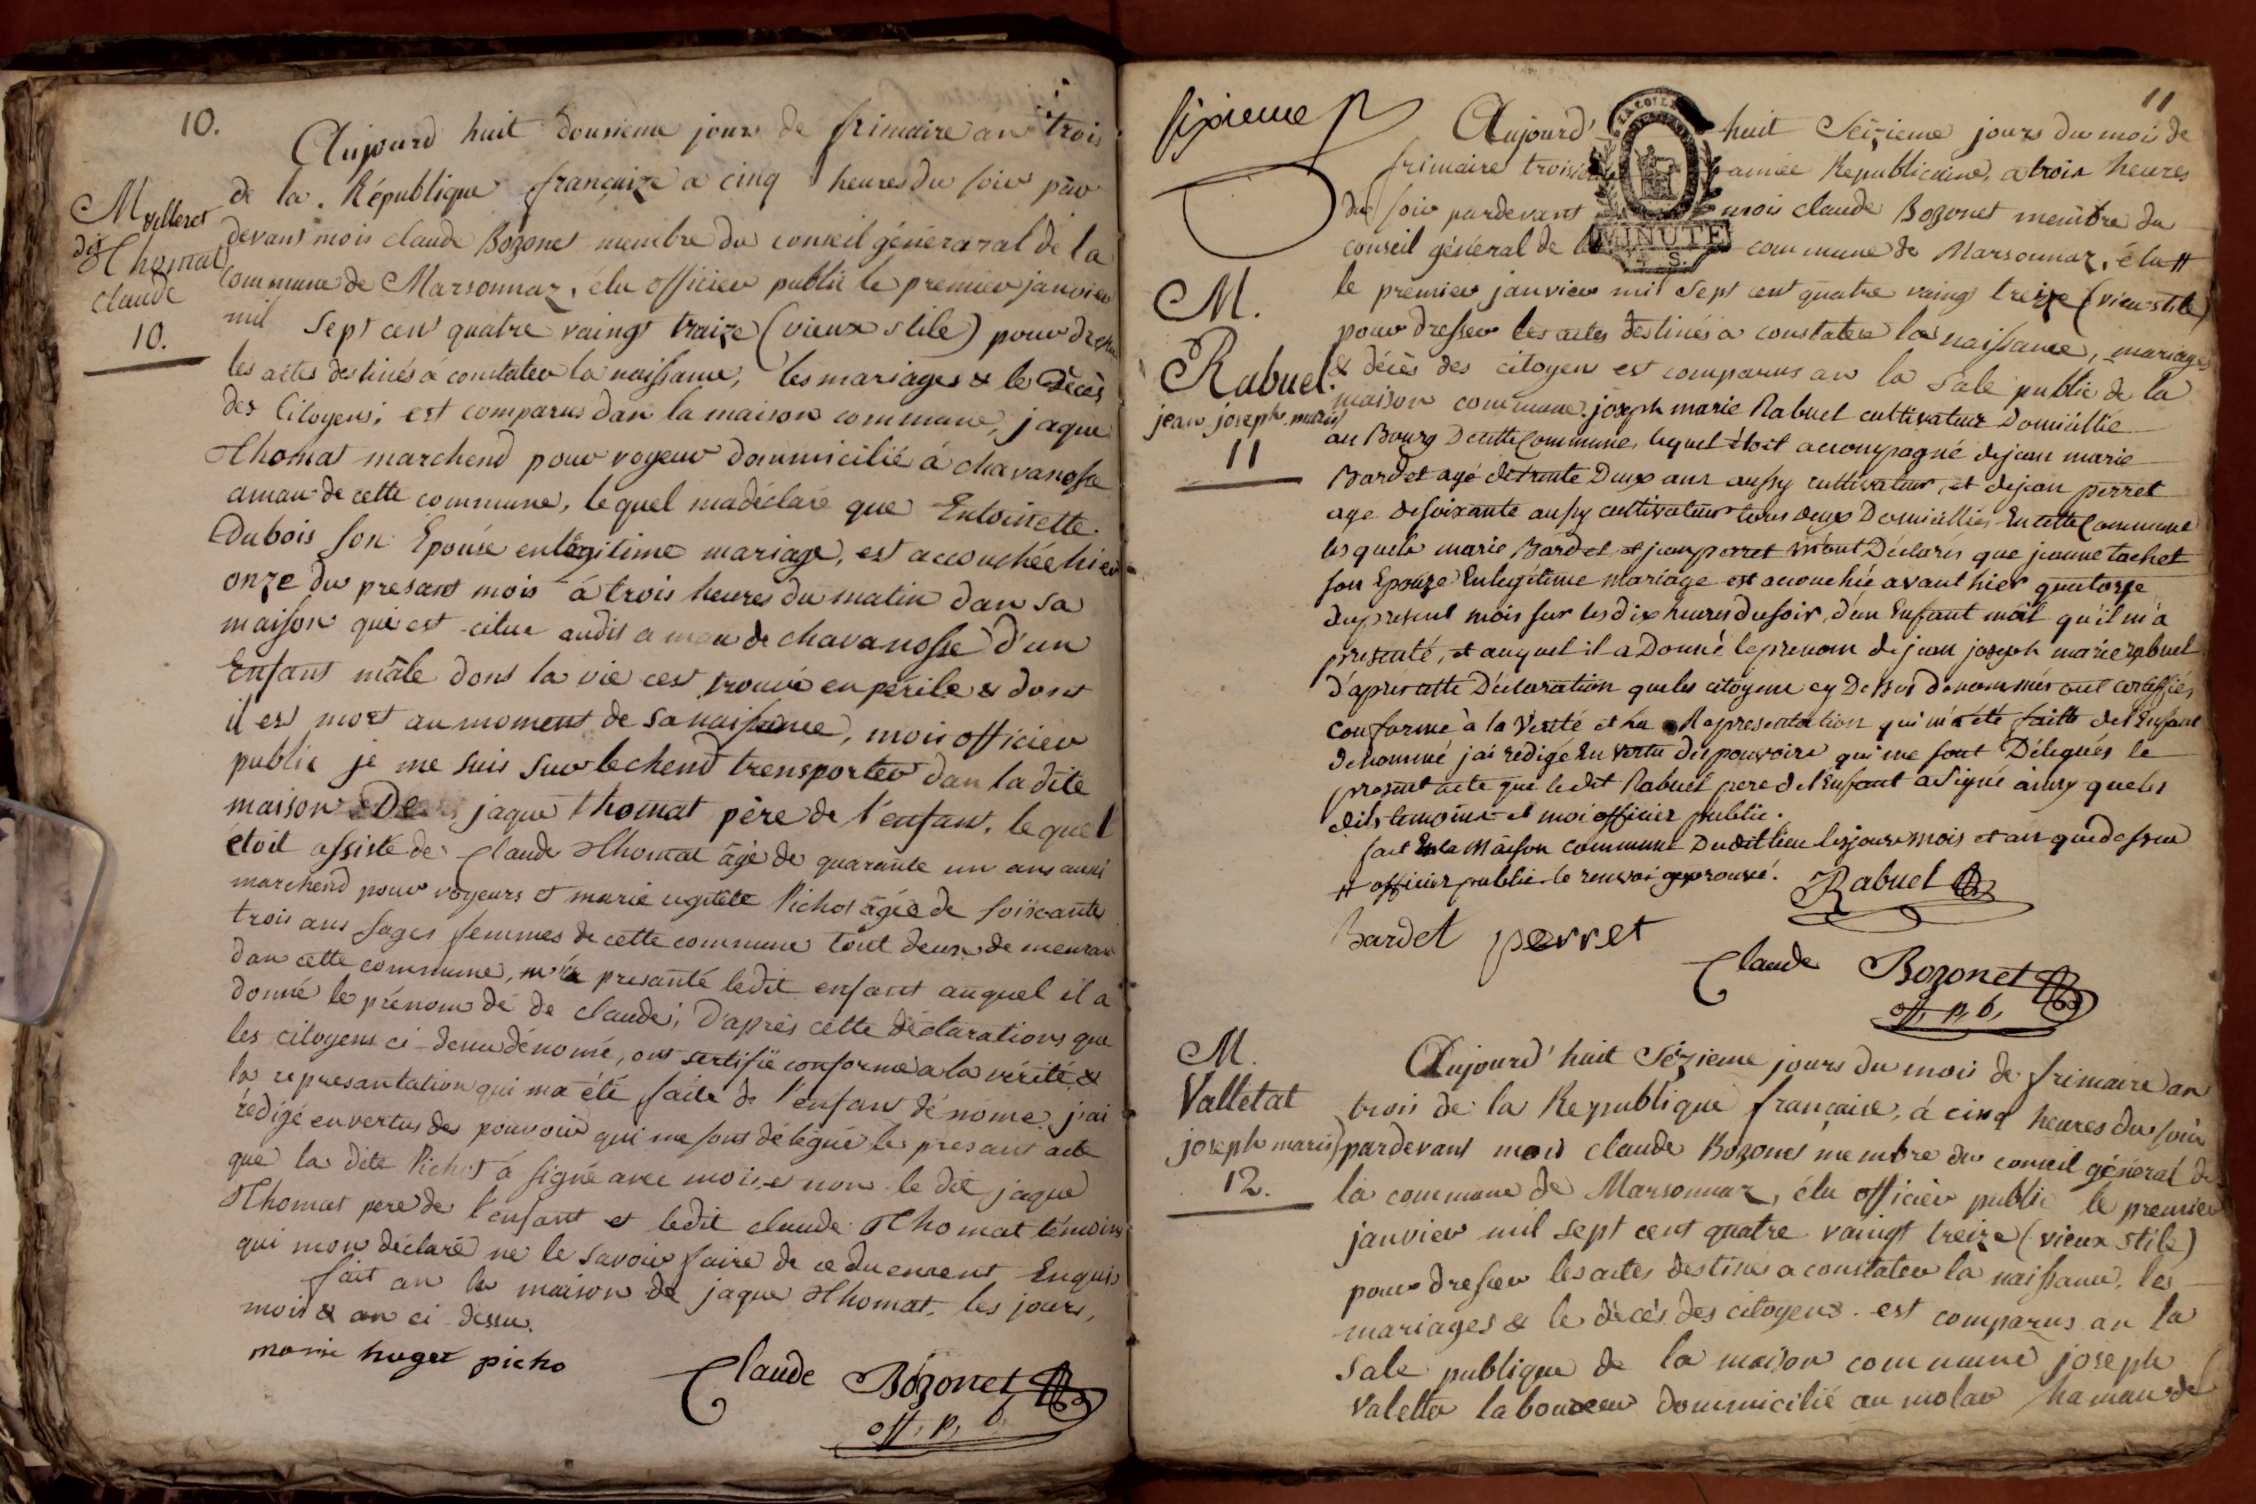 10.
Aujourd huit dousieme jours de frimaire an trois
de la République françaize a cinq heures du soir par
devant mois claude Bozonet membre du conseil généraral de la
commune de Marsonnaz, élu officier public le premier janvier
mil sept cent quatre vaingt traize (vieux stile) pour dresser
les actes destinés à constater la naissance, les mariages & le décès
des Citoyens, est comparus dan la maison commune, jaque
Thomat marchend pour voyeur dommicilié à chavanosse
amau de cette commune, lequel ma déclaré que Entoinette
Dubois son Epouse en légitime mariage, est accouchée hier
onze du presant mois à trois heures du matin dan sa
maison qui est citue audit amau de chavanosse d'un
Enfant mâle dont la vie cest trouvé en périle & dont
il est mort au moment de sa naissance, mois officier
public je me suis sur le chend trensporter dan la dite
maison De jaque thomat père de l'enfant, lequel
étoit assisté de Claude Thomat âgé de quarante un ans aussi
marchend pour voyeurs et marie Pichot âgée de soixante
trois ans sages femmes de cette commune tout deux de meuran
dan cette commune, m'a presanté ledit enfant auquel il a
donné le prénom de de claude, D'après cette déclarations que
les citoyens ci-denu dénomé, ont sertifié conforme a la vérité &
la represantation qui ma été faite de l'enfant dénomé, j'ai
rédigé en vertus des pouvoir qui me sont délégué le presant acte
que la dite Pichot à signé avec mois, et non le dit jaque
Thomat pere de l'enfant et ledit claude Thomat témoins
qui mon déclaré ne le savoir faire de ce duement Enquis
fait an la maison de jaque Thomat, les jours,
mois & an ci dessu.
marie huget picho
Claude Bozonet
off. p. b.
M
villeret
dit
Thomat
claude
10.
11
sixieme
Aujourd'huit Seizieme jours du mois de
frimaire troisieme année Republicaine, a trois heures
du soir pardevant mois claude Bozonet membre du
conseil général de la commune de Marsonnaz, élu #
MINUTE
4 S.
le premier janvier mil sept cent quatre vaingt treize (vieu stile)
pour dresser les actes destinés a constater la naissance, mariages
& décès des citoyen est comparus an la sale public de la
maison commune, joseph marie Rabuel cultivateur Domicillié
au Bourg De cette Commune, lequel étoit accompagné de jean marie
Bardet agé de trente Deux ans aussy cultivateur, et de jean perret
age de soixante aussy cultivateur tous deux Domicilliés En cette Commune
lesquels marie Bardet et jean perret m'ont Déclarés que jeanne tachet
son Epouze En legitime mariage est acouchée avant hier quatorze
du present mois sur les dix heures du soir, d'un Enfant mâl qu'il m'a
presenté, et auquel il a Donné le prenom de jean joseph marie rabuel
D'apres cette Declaration que les citoyens cy Dessus denommés ont certiffiés
Conforme à la Verité et la Representation qui m'a été faitte de l'Enfant
denommé j'ai redigé En vertu des pouvoirs qui me sont Délegués le
present acte que le dit Rabuel pere de l'Enfant a Signé ainsy que les
dits temoins et moi officier public.
fait En la Maison Commune Dudit lieu les jours mois et an que dessus
# officier public le renvoi approuvé.
Rabuel
Bardet perret
Claude Bozonet
off. p. b.
M.
Rabuel
jean joseph marie
11
M.
Valletat
joseph marie
12.
Aujourd'huit Sézieme jours du mois de frimaire an
trois de la Republique française, à cinq heures du soir
pardevant mois claude Bozonet membre du conseil général de
la commune de Marsonnaz, élu officier public le premier
janvier mil sept cent quatre vaingt treize (vieux stile)
pour dresser les actes destinés a constater la naissance, les
mariages & le décès des citoyens, est comparus an la
sale publique de la maison commune joseph
Valetta laboureur dommicilié au molar hamau de